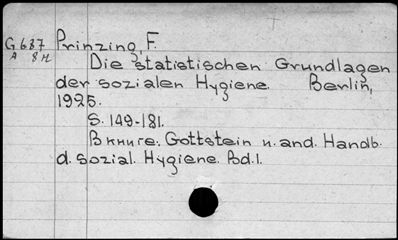 G 637 Prinzing, F.
A 8н
Die statistischen Grundlagen
der sozialen Hygiene. Berlin,
1925.
S. 149-181.
В книге. Gottstein u. and. Handb.
d. sozial. Hygiene. Bd. 1.